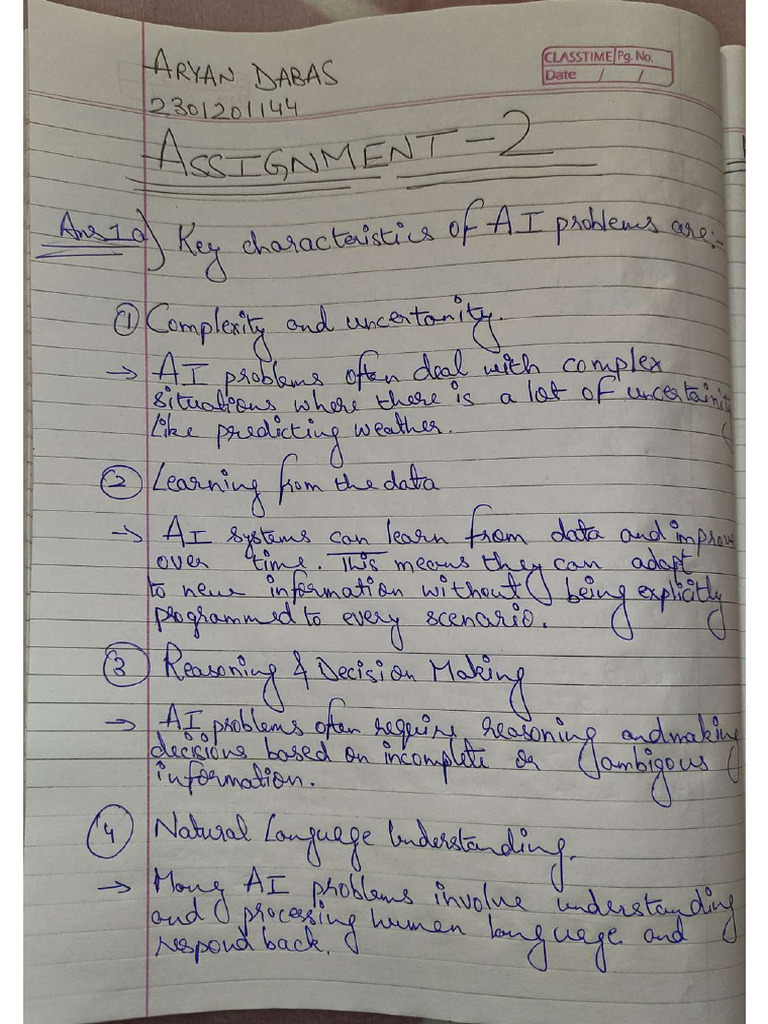 ARYAN DABAS
CLASSTIME Pg. No.
Date / /
2301201144
ASSIGNMENT - 2
Ans 1 a) Key characteristics of AI problems are:-
① Complexity and uncertanity.
→ AI problems often deal with complex
situations where there is a lot of uncertainity
like predicting weather.
② Learning from the data
→ AI systems can learn from data and improve
over time. This means they can adapt
to new information without being explicitly
programmed to every scenario.
③ Reasoning & Decision Making
→ AI problems often require reasoning and making
decisions based on incomplete or ambigous
information.
④ Natural Language Understanding.
→ Many AI problems involve understanding
and processing human language and
respond back.